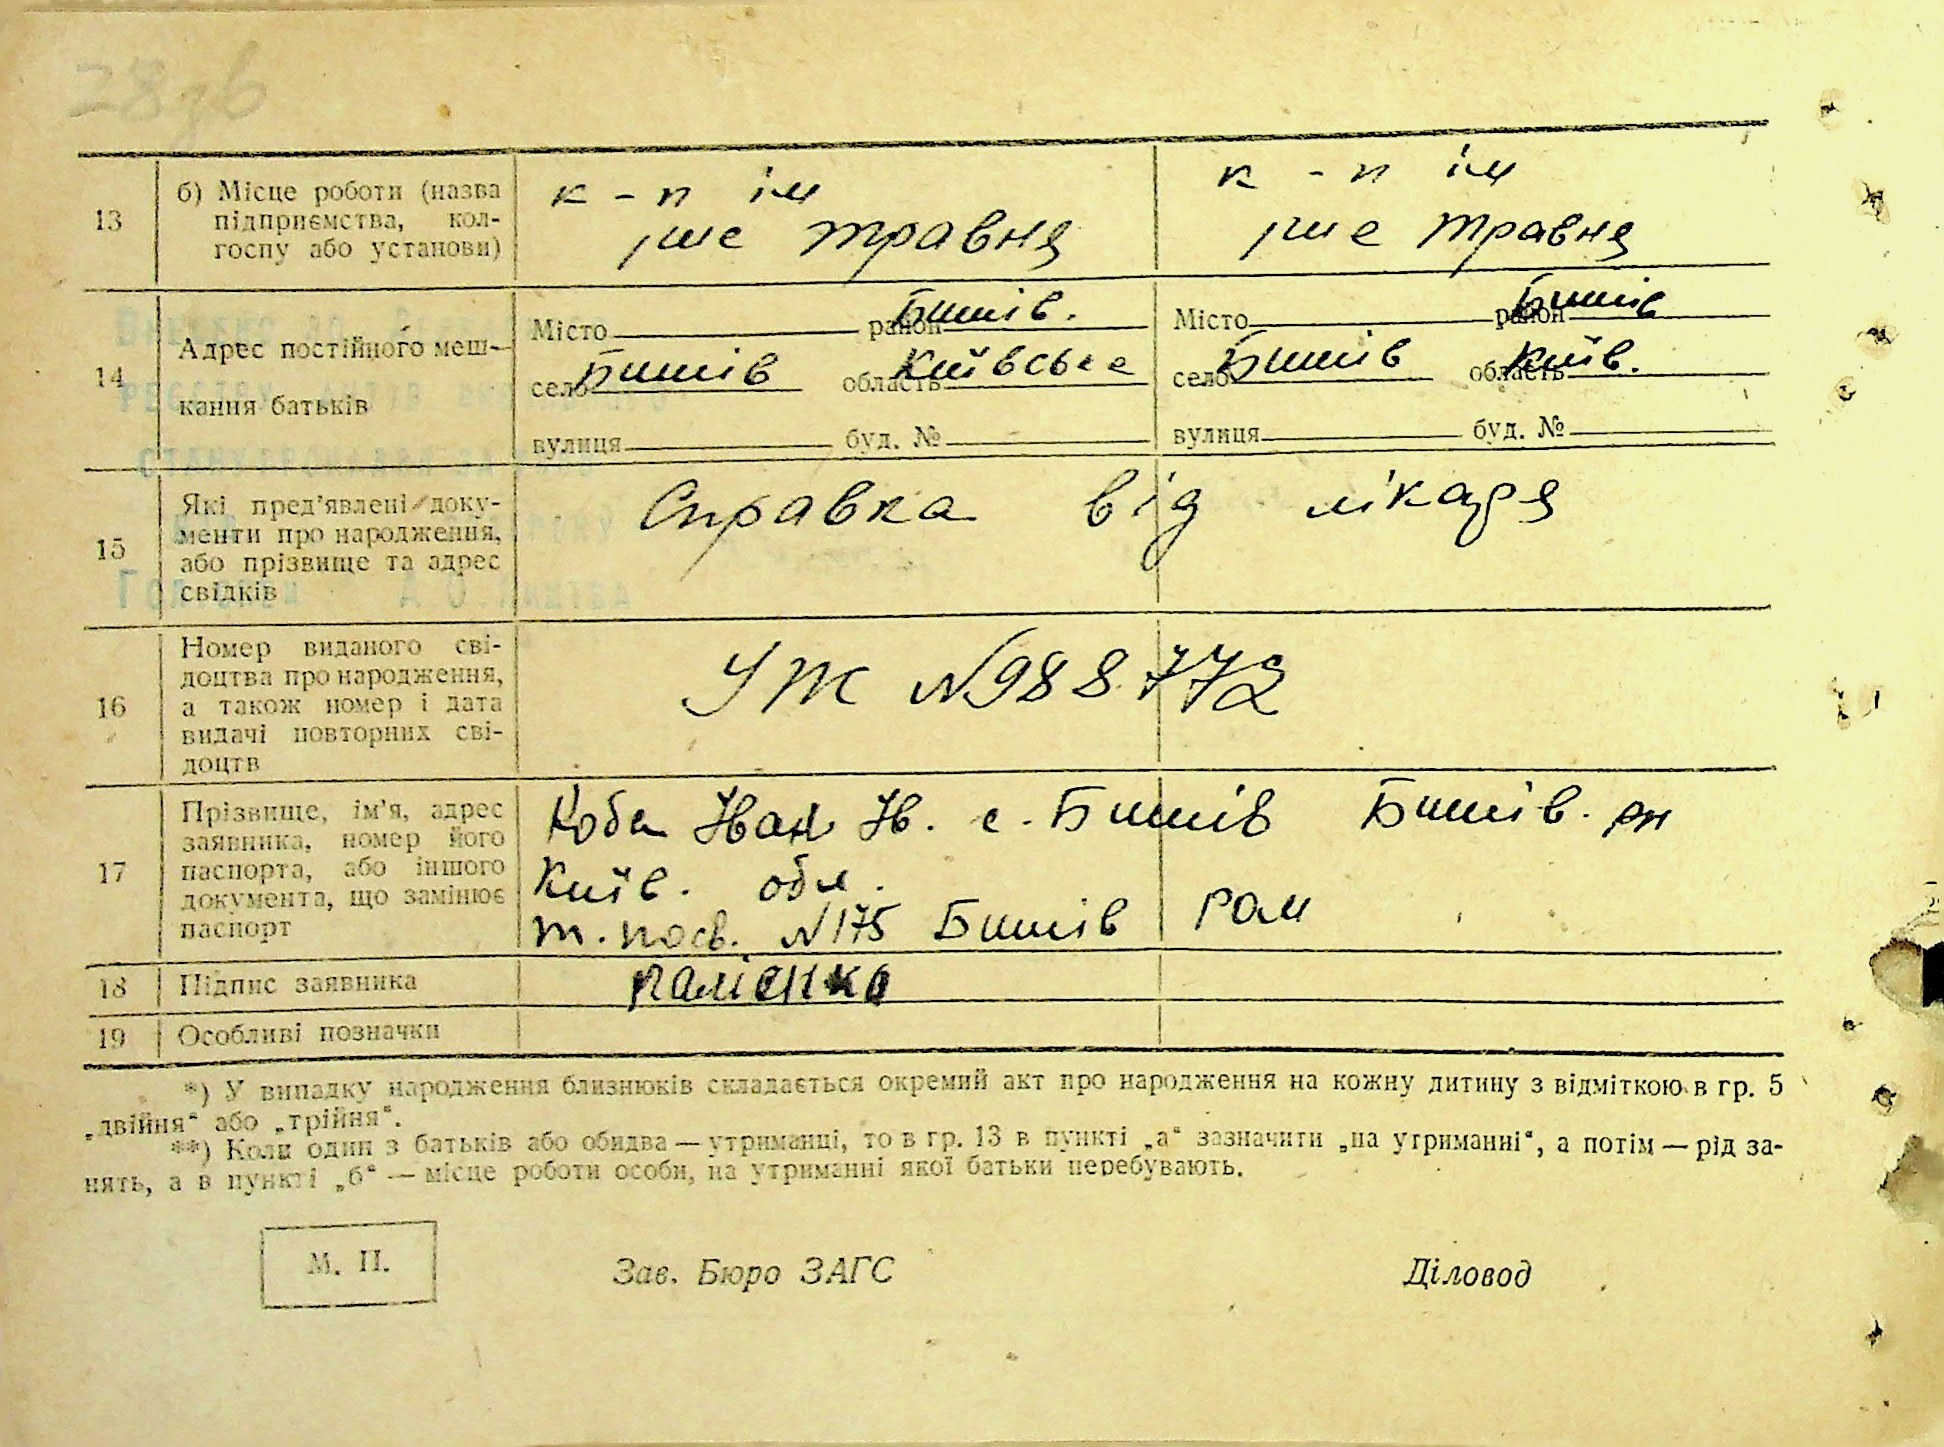 28 зв
13 б) Місце роботи (назва підприємства, кол-
госпу або установи)
к-п ім
1ше травня
к-п ім
1ше травня
14 Адрес постійного меш-
кання батьків
Місто район Бишів.
село Бишів область Київське
вулиця буд. №
Місто район Бишів
село Бишів область Київ.
вулиця буд. №
15 Які пред'явлені доку-
менти про народження,
або прізвище та адрес
свідків
Справка від лікаря
16 Номер виданого сві-
доцтва про народження,
а також номер і дата
видачі повторних сві-
доцтв
УЖ №988772
17 Прізвище, ім'я, адрес
заявника, номер його
паспорта, або іншого
документа, що замінює
паспорт
Коба Іван Ів. с. Бишів Бишів. рн
Київ. обл.
т. посв. №175 Бишів
18 Підпис заявника
19 Особливі позначки
*) У випадку народження близнюків складається окремий акт про народження на кожну дитину з відміткою в гр. 5
„двійня“ або „трійня“.
**) Коли один з батьків або обидва — утриманці, то в гр. 13 в пункті „а“ зазначити „на утриманні“, а потім — рід за-
нять, а в пункті „б“ — місце роботи особи, на утриманні якої батьки перебувають.
М. П.
Зав. Бюро ЗАГС
Діловод